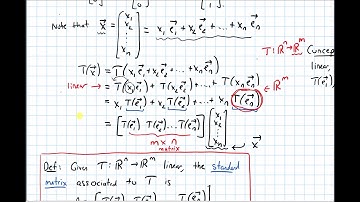 Note that x⃗ = [x₁ x₂ ⋮ xₙ] = x₁e⃗₁ + x₂e⃗₂ + ... + xₙe⃗ₙ
T: ℝⁿ→ℝᵐ
T(x⃗) = T(x₁e⃗₁ + x₂e⃗₂ + ... + xₙe⃗ₙ)
linear,
linear → = T(x₁e⃗₁) + T(x₂e⃗₂) + ... + T(xₙe⃗ₙ) ℝᵐ
= x₁T(e⃗₁) + x₂T(e⃗₂) + ... + xₙT(e⃗ₙ)
= [T(e⃗₁) T(e⃗₂) ... T(e⃗ₙ)] [x₁ x₂ ⋮ xₙ]
m × n
matrix
x⃗
Def: Given T: ℝⁿ→ℝᵐ linear, the standard
matrix associated to T is